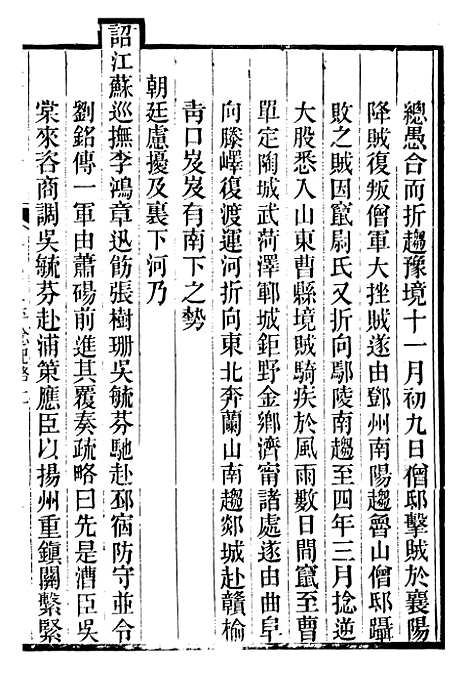 總愚合而折趨豫境十一月初九日僧邸擊賊於襄陽
降賊復叛僧軍大挫賊遂由鄧州南陽趨魯山僧邸躡
敗之賊因竄尉氏又折向鄢陵南趨至四年三月捻逆
大股悉入山東曹縣境賊騎疾於風雨數日間竄至曹
單定陶城武荷澤鄆城鉅野金鄉濟甯諸處遂由曲阜
向滕嶧復渡運河折向東北奔蘭山南趨郯城赴贛榆
靑口岌岌有南下之勢
朝廷慮擾及裏下河乃
詔江蘇巡撫李鴻章迅飭張樹珊吳毓芬馳赴邳宿防守並令
劉銘傳一軍由蕭碭前進其覆奏疏略曰先是漕臣吳
棠來咨商調吳毓芬赴浦策應臣以揚州重鎮關繫緊